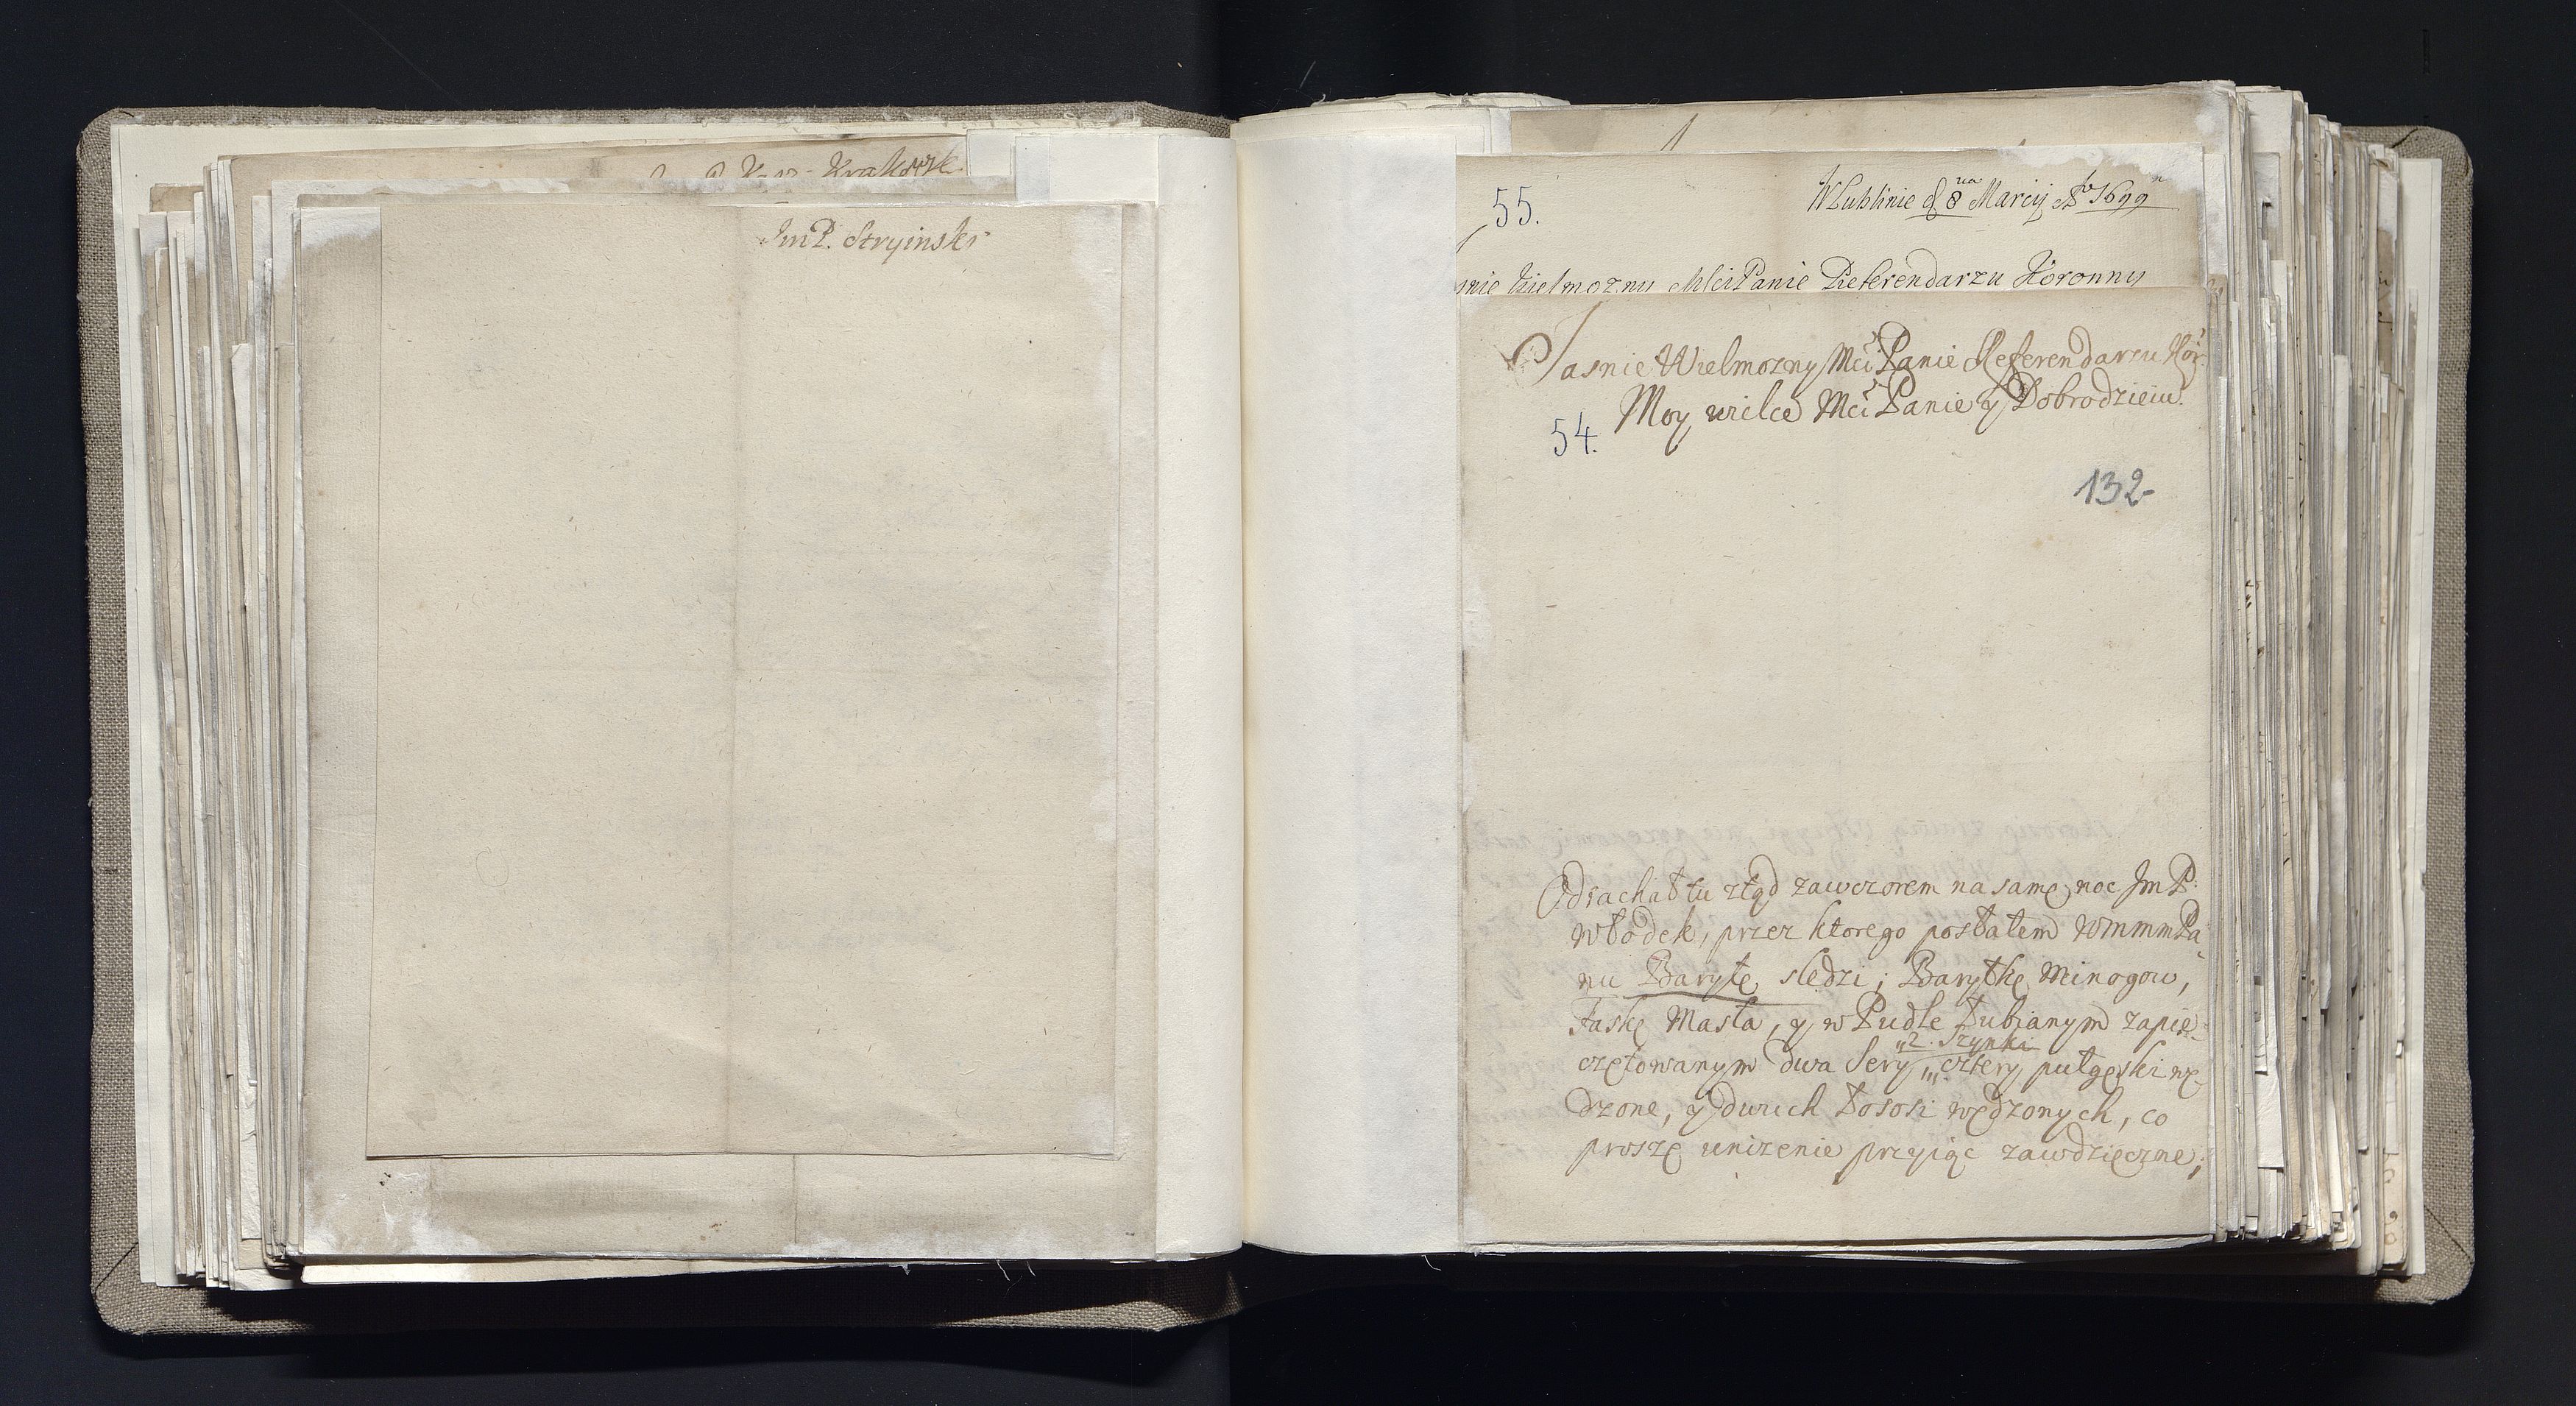 Krakowsk.
JmP. Stryinski
55.
WLublinie d 8 na Marcij Ao 1699
snie Wielmozny MsciPanie Referendarzu Koronny
Jasnie Wielmozny Mci Panie Referendarzu Kor.
Moy wielce Mci Panie y Dobrodzieiu.
54.
132
Odiachał tu ztąd zawczorem na samę noc JmP.
Włodek, przez ktorego posłałem WmmmPa
nu Baryłę sledzi; Baryłkę Minogow,
Faskę Masła, y w Pudle Łubianym zapie
„2. Szynki
czętowanym dwa Sery „, cztery pułgęski wę
dzone, y dwuch Łososi wędzonych, co
proszę unizenie przyiąc zawdzięczne;